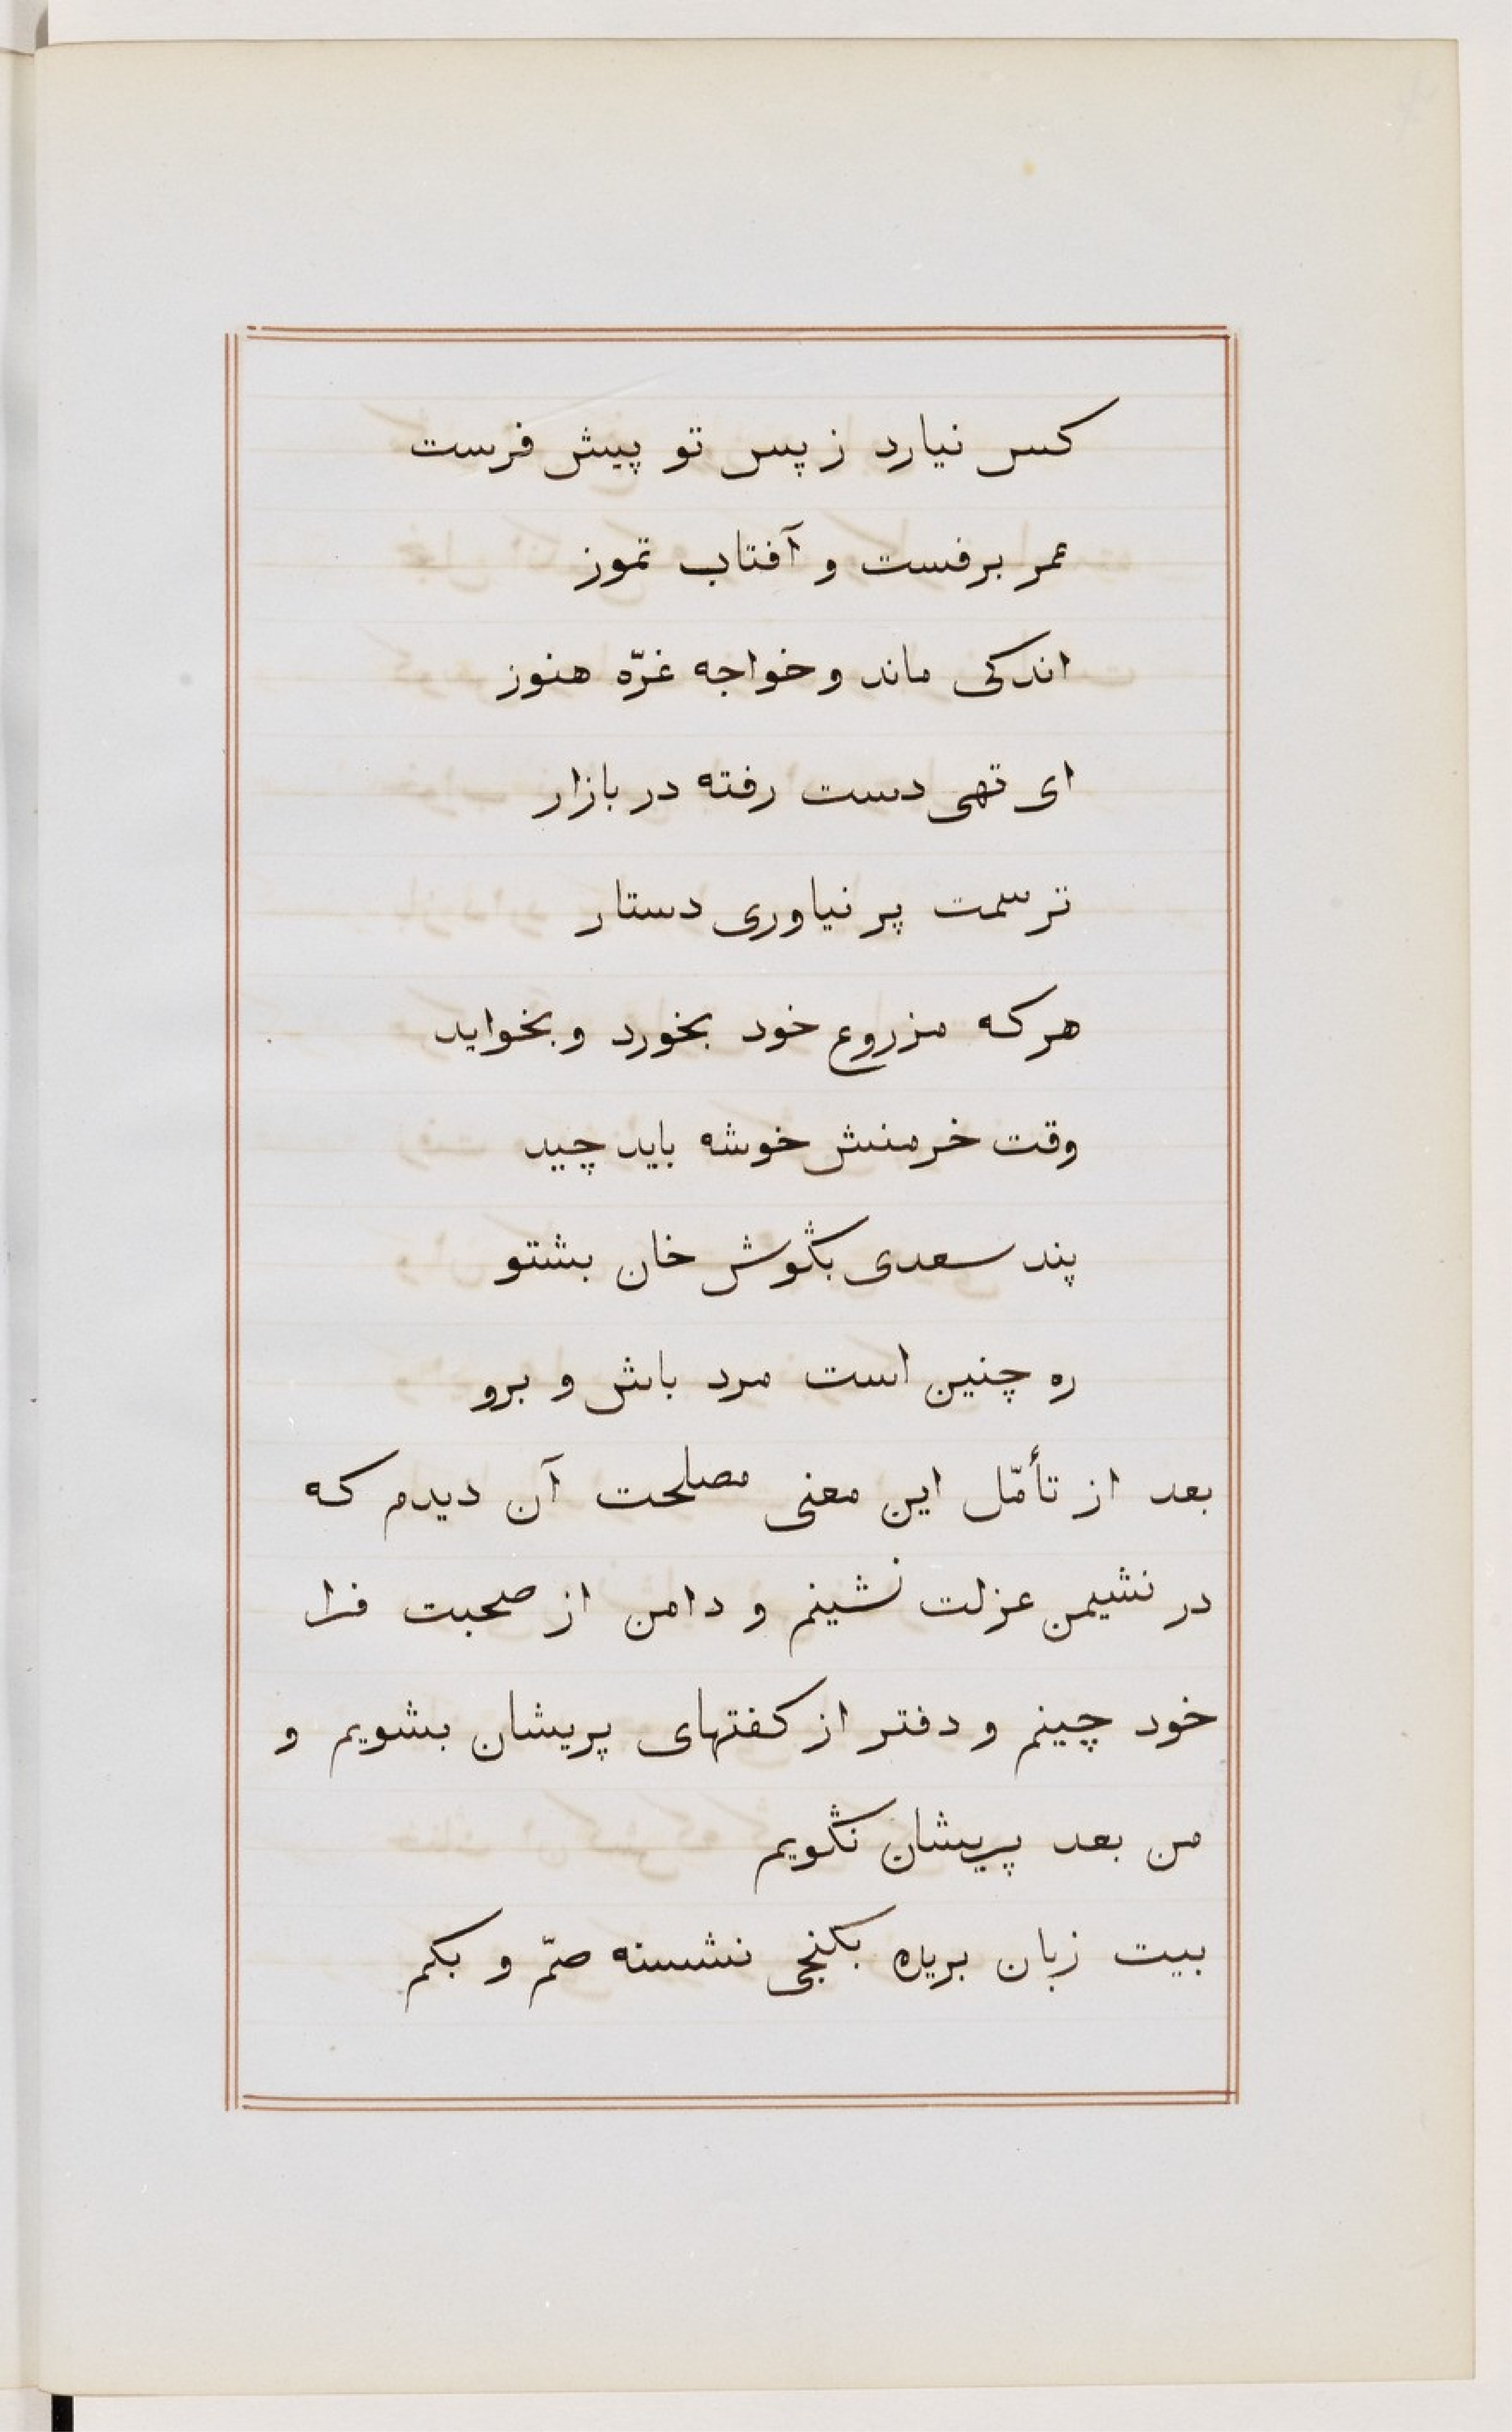 کس نیارد ز پس تو پیش فرست
عمر برفست و آفتاب تموز
اندکی ماند و خواجه غرّه هنوز
ای تهی دست رفته در بازار
ترسمت پر نیاوری دستار
هر که مزروع خود بخورد و بخواید
وقت خرمنش خوشه باید چید
پند سعدی بگوش خان بشتو
ره چنین است مرد باش و برو
بعد از تأمّل این معنی مصلحت آن دیدم که
در نشیمن عزلت نشینم و دامن از صحبت فرا
خود چینم و دفتر از کفتهای پریشان بشویم و
من بعد پریشان نگویم
بیت زبان بریده بکنجی نشسته صمّ و بکم